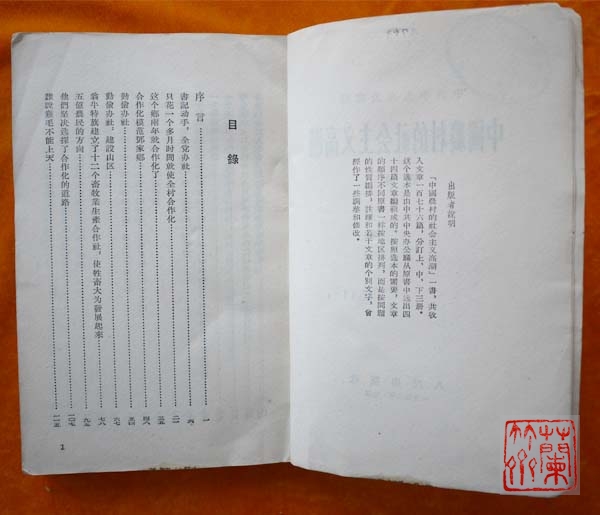 出版者說明
「中國農村的社会主义高潮」一書，共收
入文章一百七十六篇，分訂上、中、下三册。
这个选本是由中共中央办公廳从原書中选出四
十四篇文章編輯成的。按照选本的需要，文章
的順序不同原書一样按地区排列，而是按問題
的性質編排，註釋和若干文章的个別文字，曾
經作了一些調整和修改。
目錄
序言……一
書記动手，全党办社……六
只花一个多月時間就使全村合作化……二一
这个鄉兩年就合作化了……三五
合作化模范鄧家鄉……四八
勤儉办社……五四
勤儉办社，建設山区……六七
翁牛特旗建立了十二个畜牧業生產合作社，使牲畜大为發展起來……七八
五億農民的方向……九五
他們坚决选择了合作化的道路……一〇七
誰說鷄毛不能上天……一一五
1
蘭竹